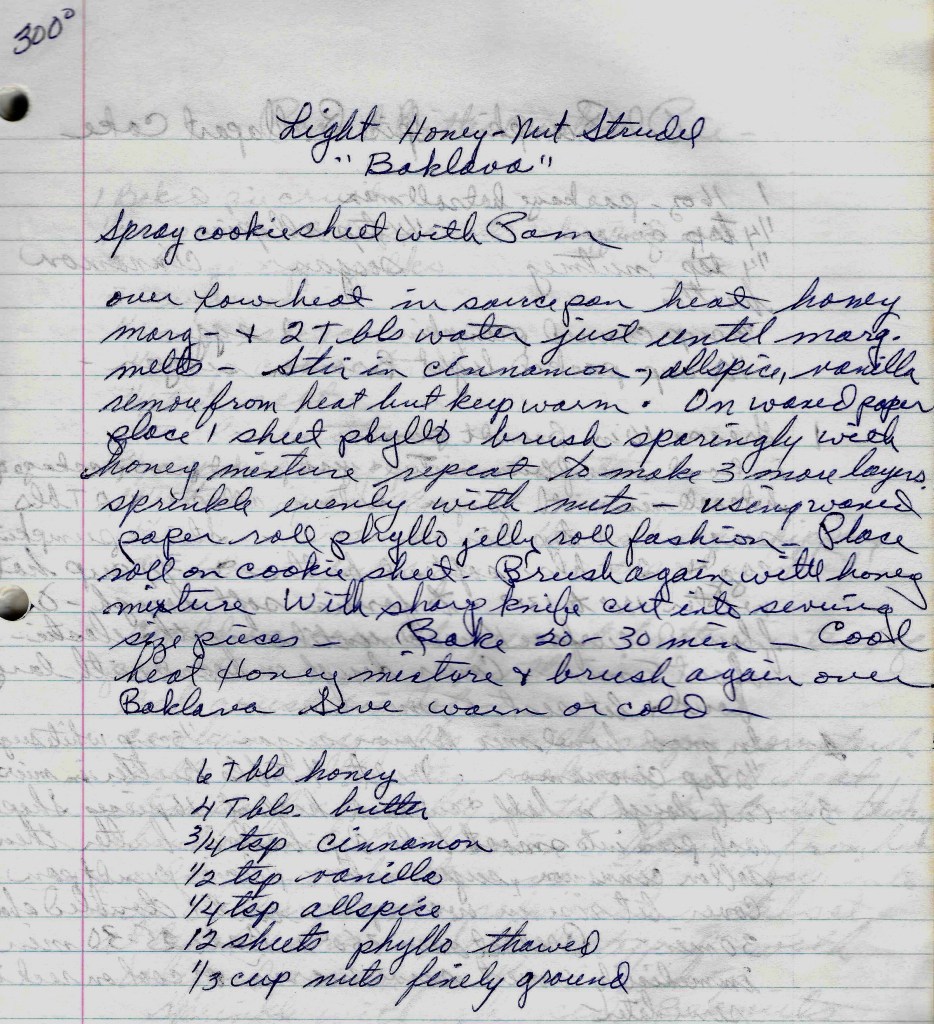 300°
Light Honey-Nut Strudel
"Baklava"
Spray cookie sheet with Pam
over low heat in saucepan heat honey
marg - + 2 Tbls water just until marg.
melts - Stir in cinnamon -, allspice, vanilla
remove from heat but keep warm. On waxed paper
place 1 sheet phyllo brush sparingly with
honey mixture repeat to make 3 more layers.
sprinkle evenly with nuts - using waxed
paper roll phyllo jelly roll fashion - Place
roll on cookie sheet. Brush again with honey
mixture With sharp knife cut into serving
size pieces - Bake 20-30 min - Cool
heat Honey mixture + brush again over
Baklava Serve warm or cold -
6 Tbls honey
4 Tbls. butter
3/4 tsp. cinnamon
1/2 tsp vanilla
1/4 tsp allspice
12 sheets phyllo thawed
1/3 cup nuts finely ground